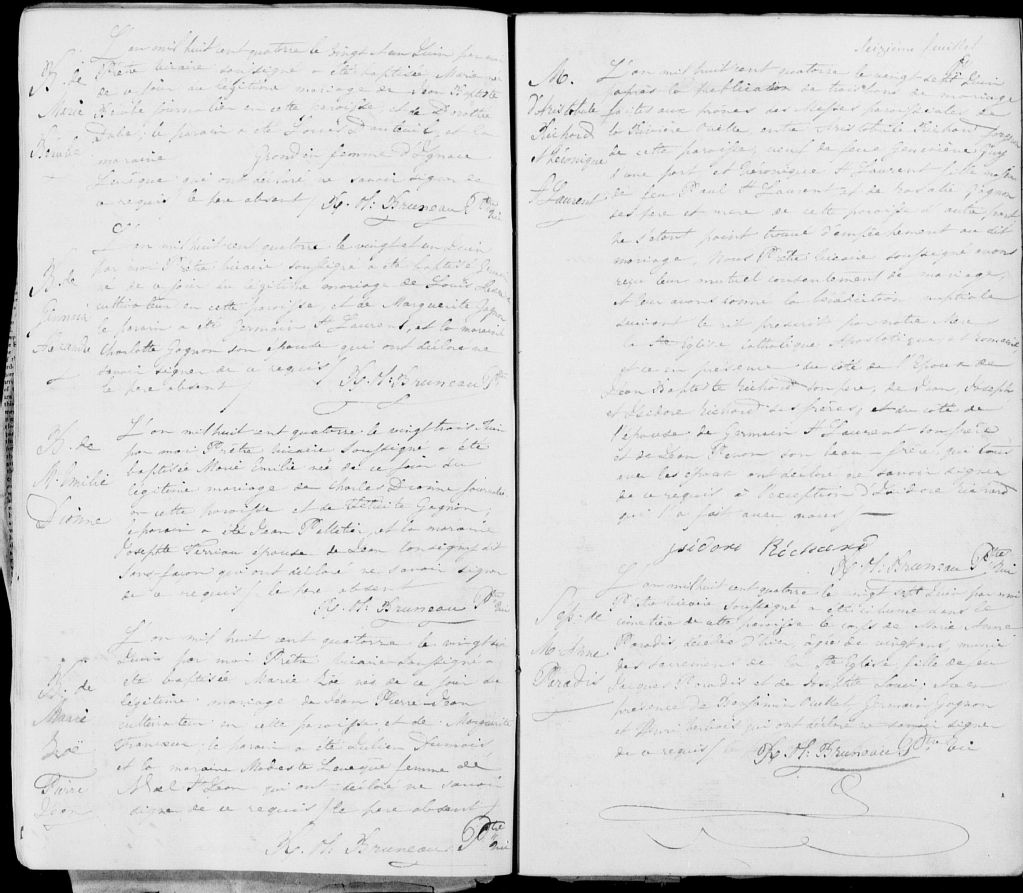 L'an mil huit cent quatorze le vingt et un Juin par moi
B. de
Prêtre vicaire soussigné a été baptisée Marie née
Marie
de ce jour du légitime mariage de Jean Baptiste
Journalier en cette paroisse et de Dorothée
Dubé; le parain a été Louis Dauteuil, et la
maraine Grondin femme d'Ignace
Levêque qui ont déclaré ne savoir signer de
ce requis le pere absent / R. H. Bruneau Ptre Vic
L'an mil huit cent quatorze le vingt et un Juin
par moi Prêtre vicaire soussigné a été baptisé
B. de
né de ce jour du légitime mariage de Louis
cultivateur en cette paroisse et de Marguerite Gagnon
le parain a été Germain St Laurent, et la maraine
Charlotte Gagnon son épouse qui ont déclaré ne
savoir signer de ce requis
le pere absent / R. H. Bruneau Ptre
L'an mil huit cent quatorze le vingt trois Juin
B. de
par moi Prêtre vicaire soussigné a été
M. Emilie
baptisée Marie Emilie née de ce jour du
légitime mariage de Charles Dionne journalier
Dionne
en cette paroisse et de Gagnon;
le parain a été Jean Pelletier et la maraine
Josephte Terriau épouse de Jean dit
Sans-façon qui ont déclaré ne savoir signer
de ce requis / le pere absent
R. H. Bruneau Ptre Vic
L'an mil huit cent quatorze le vingt six
Juin par moi Prêtre vicaire soussigné a
B. de
été baptisée Marie Zoë née de ce jour du
Marie
légitime mariage de Jean Pierre-Jean
Zoë
cultivateur en cette paroisse et de Marguerite
Pierre
Francœur le parain a été Julien Dumais,
Jean
et la maraine Modeste Levêque femme de
Noel St Jean qui ont déclaré ne savoir
signer de ce requis / le pere absent /
R. H. Bruneau Ptre Vic
feuillet
M.
L'an mil huit cent quatorze le vingt sept Juin
d'Aristobule
après la publication de trois bans de mariage
Richard
faites aux prones des Messes paroissiales de
& Véronique
la Rivière Ouelle entre Aristobule Richard
St Laurent
de cette paroisse, veuf de feue Geneviève
d'une part et Véronique St Laurent fille
de feu Paul St Laurent et de Rosalie Gagnon
ses pere et mere de cette paroisse d'autre part
ne s'étant point trouvé d'empêchement au dit
mariage, Nous Prêtre vicaire soussigné avons
reçu leur mutuel consentement de mariage,
et leur avons donné la bénédiction nuptiale
suivant le rit prescrit par notre Mere
la Ste Eglise Catholique Apostolique & Romaine,
et ce en présence du côté de l'Epoux de
Jean Baptiste Richard son pere, de Jean Joseph
et Isidore Richard ses frères; et du côté de
l'épouse de Germain St Laurent son frère
et de Jean son beau-frère qui tous
avec les époux ont déclaré ne savoir signer
de ce requis à l'exception d'Isidore Richard
qui l'a fait avec nous —
Isidore Richard
R. H. Bruneau Ptre Vic
L'an mil huit cent quatorze le vingt sept Juin par moi
Sep. de
Prêtre vicaire soussigné a été inhumé dans le
cimetière de cette paroisse le corps de Marie Anne
M. Anne
Paradis, décédée d'hier, âgée de vingt ans, munie
Paradis
des sacremens de la Ste Eglise, fille de feu
Jacques Paradis et de Josephte ; et ce en
présence de Benjamin Ouellet Germain Gagnon
et qui ont déclaré ne savoir signer
de ce requis / R. H. Bruneau Ptre Vic